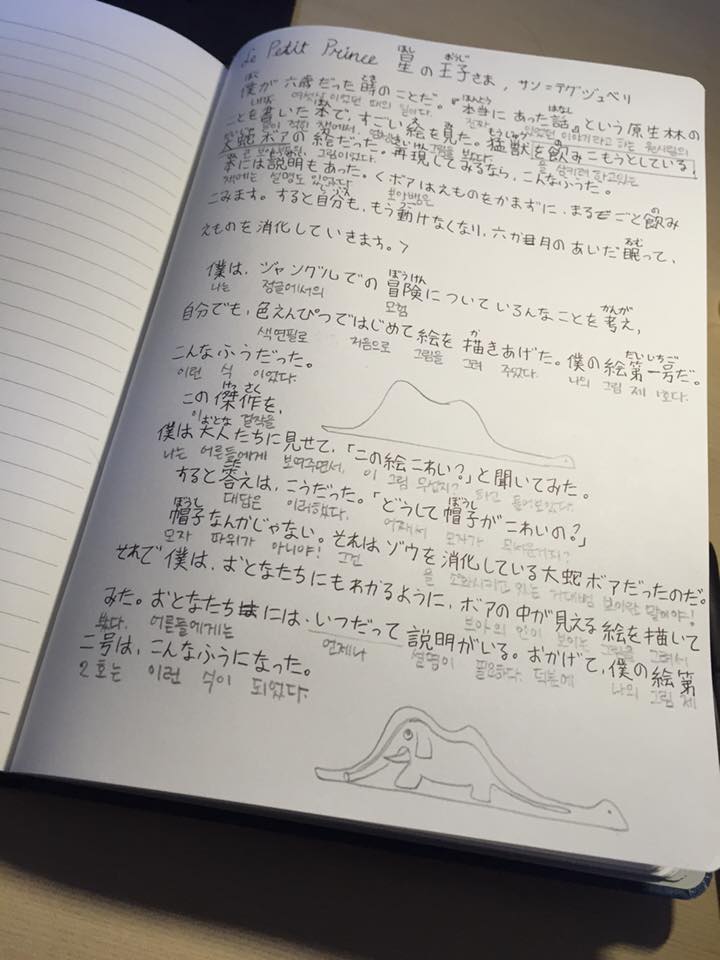 Le Petit Prince 星の王子さま, サン=テグジュペリ
ほし おうじ
ぼく とき ほんとう はなし
僕が六歳だった時のことだ。『本当にあった話』という原生林の
내가 여섯살이었던 때의 일이다. 진짜 있었던 이야기라고 하는 원시림의
ことを書いた本で、すごい絵を見た。猛獣を飲みこもうとしている
을 삼키려 하고있는
大蛇ボアの絵だった。再現してみるなら、こんなふうだ。
그림이었다.
本には説明もあった。<ボアはえものをかまずに、まるごと飲み
책에는 설명도 있었다 보아뱀은
こみます。すると自分も、もう動けなくなり、六か月のあいだ眠って、
えものを消化していきます。>
ぼうけん かんが
僕は、ジャングルでの冒険についているんなことを考え,
나는 정글에서의 모험
か だいいちごう
自分でも、色えんぴつではじめて絵を描きあげた。僕の絵第一号だ。
색연필로 처음으로 그림을 그려 주었다. 나의 그림 제 1호다.
こんなふうだった。
이런 식 이었다.
けっさく
この傑作を,
이 걸작을
おとな
僕は大人たちに見せて,「この絵こわい?」と聞いてみた。
나는 어른들에게 보여주면서, 이 그림 무섭지? 하고 물어보았다.
すると答えは、こうだった。「どうして帽子がこわいの?」
대답은 이러했다. 어째서 모자가 무서운거지?
ぼうし ぼうし
帽子なんかじゃない。それはゾウを消化している大蛇ボアだったのだ。
모자 따위가 아니야! 그건 을 소화시키고 있는 거대뱀 보아란 말이야!
それで僕は、おとなたちにもわかるように、ボアの中が見える絵を描いて
보아의 안이 보이는 그림을 그려서
みた。おとなたちには、いつだって説明がいる。おかげで、僕の絵第
봤다. 어른들에게는 언제나 설명이 필요하다. 덕분에 나의 그림 제
二号は、こんなふうになった。
2호는 이런 식이 되었다.